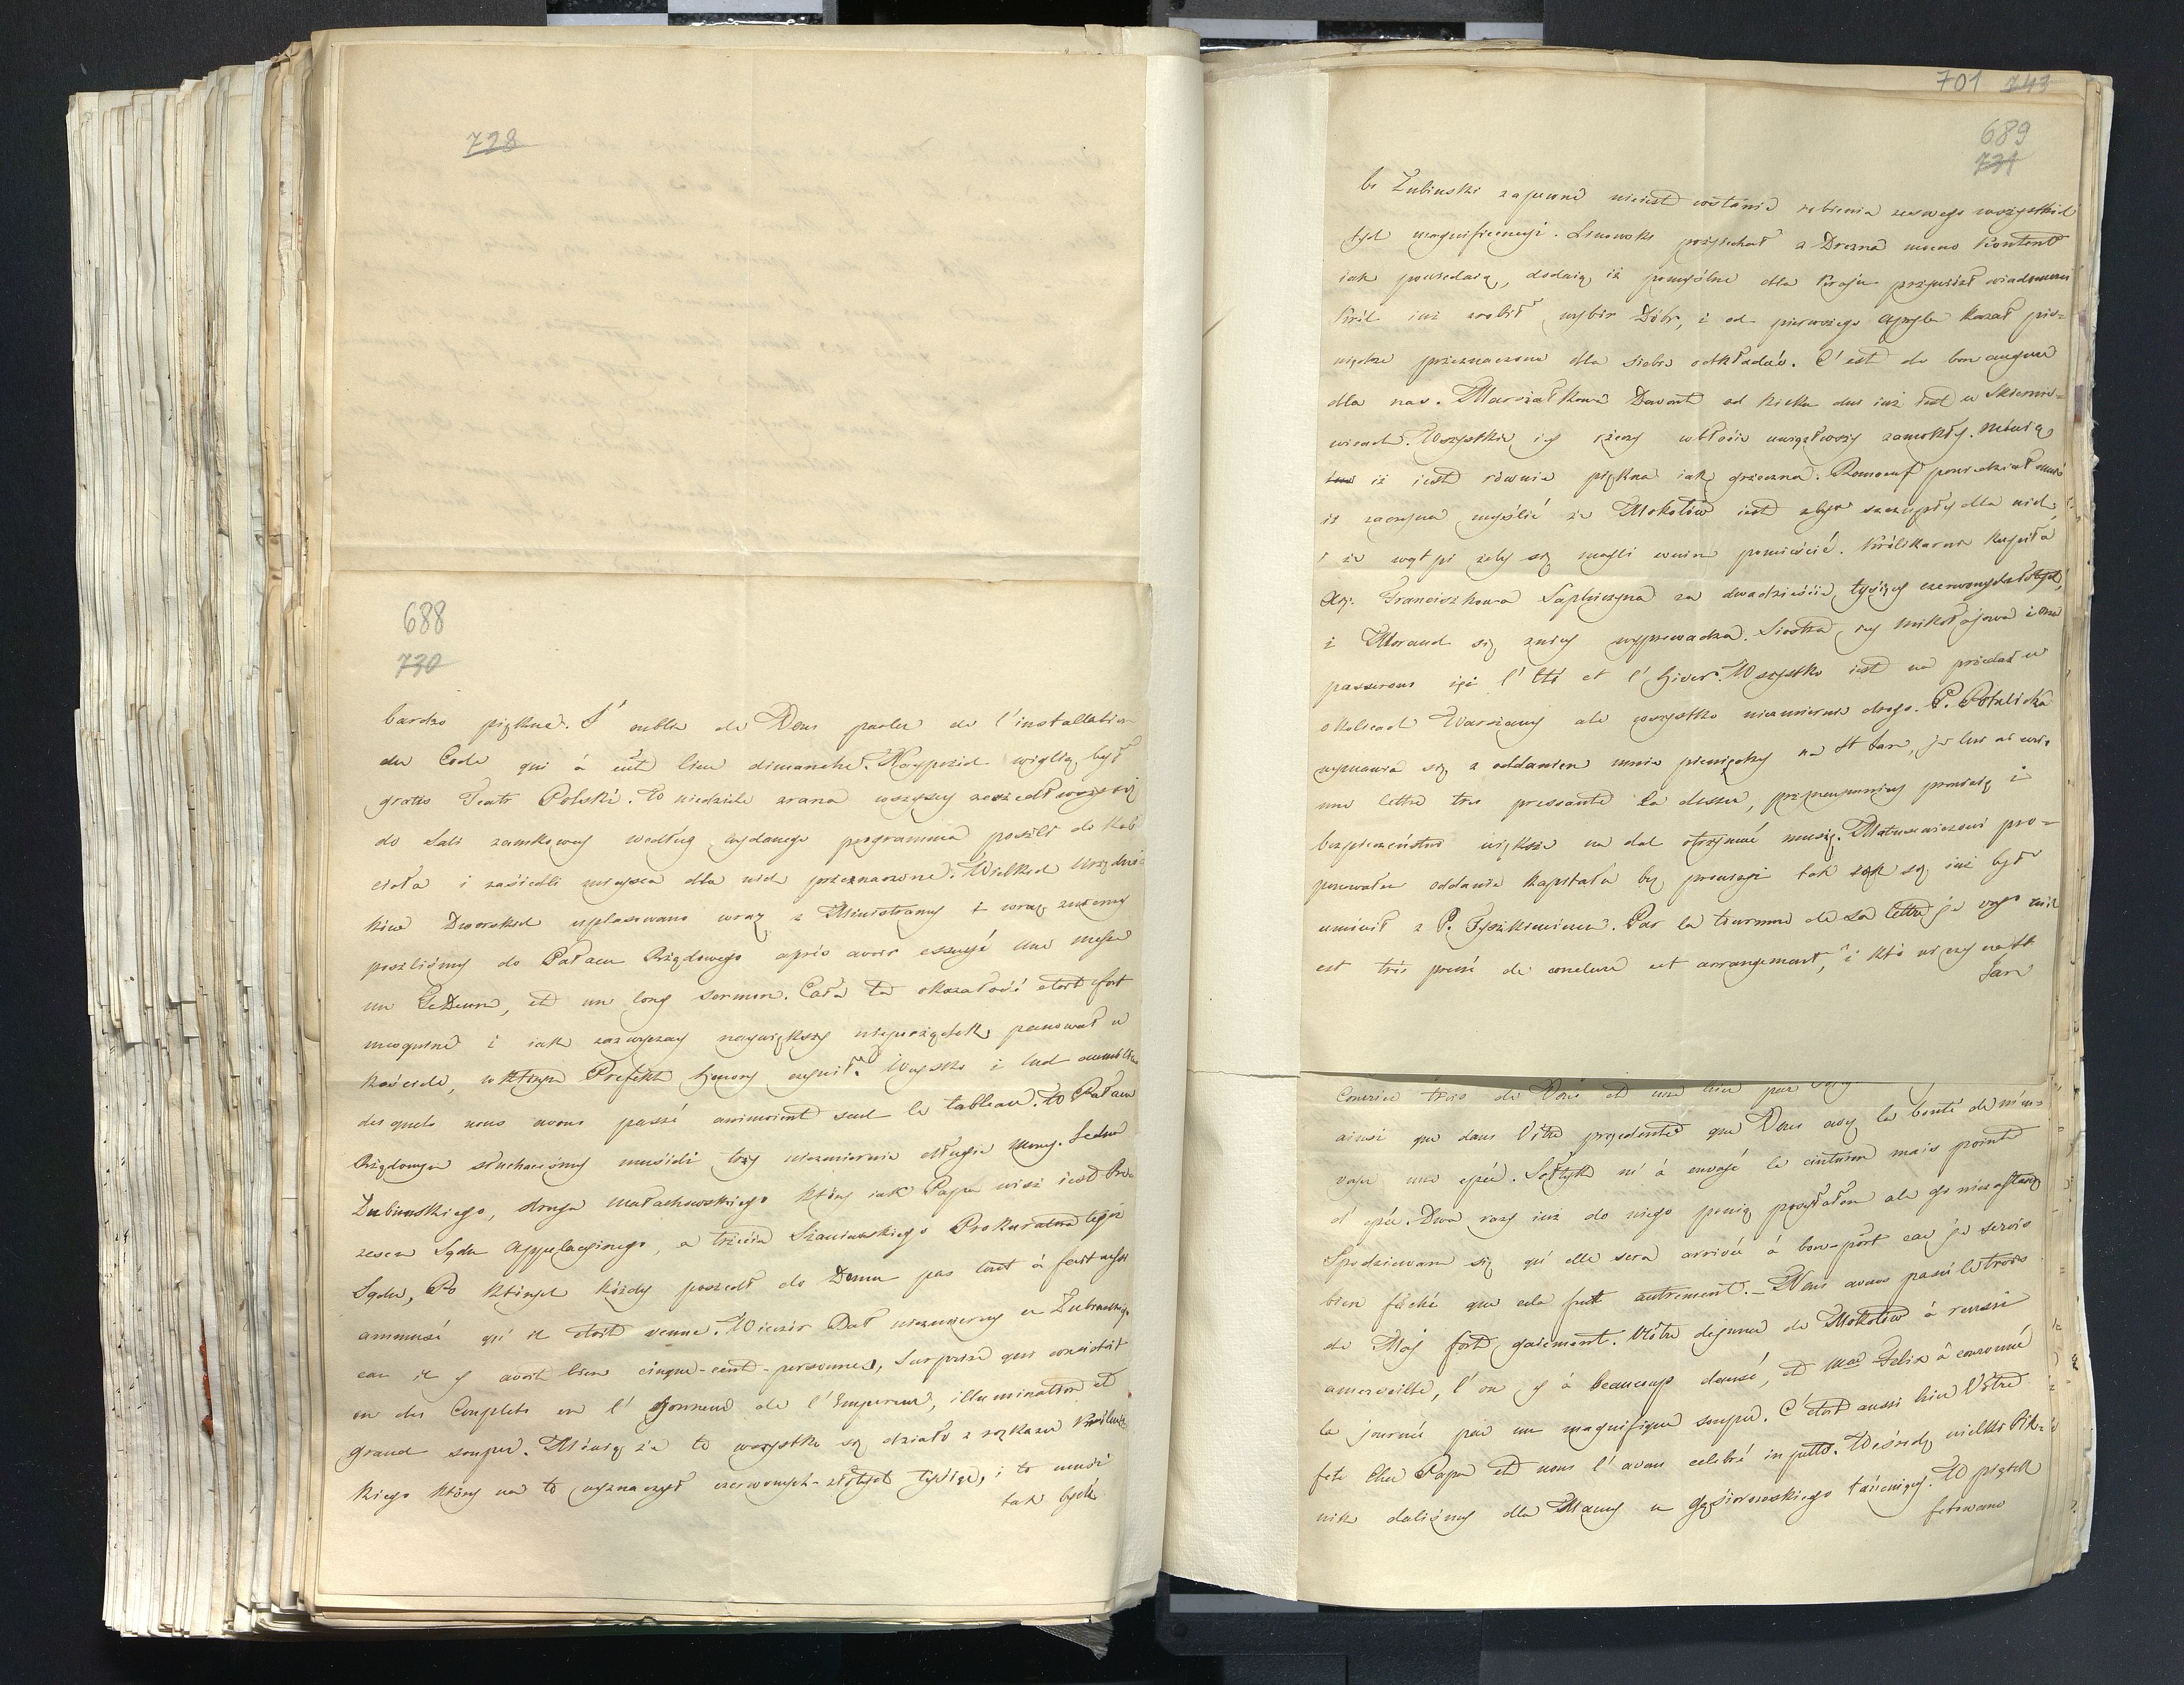 728
688
730
bardzo piękne. J' oublie de Vous parler de l'installation
du Code qui à eut lieu dimanche. Nayprzód wigilią był
gratis Teatr Polski. W niedziele zrana wszyscy zeszedłwszy się
do Sali zamkowey według wydanego programma poszli do Koś
cioła i zasiedli mieysca dla nich przeznaczone. Wielkich Urzędni-
ków Dworskich uplasowano wraz z Ministramy i wraz zniemy
poszliśmy do Pałacu Rządowego après avoir essuyé une messe
un TeDeum, et un long sermon. Cała ta okazałość etoit fort
mesquine i iak zazwyczay naywiększy nieporządek panował w
Kościele, w którym Prefekt honory czynił. Woysko i lud
desquels nous avons passé animoient seul le tableau. W Pałacu
Rządowym słuchaliśmy musieli trzy niezmiernie długie mowy. Jedna
Łubinskiego, druga Małachowskiego który iak Papa wisz iest Pre-
zesem Sądu Appelacyinego, a trzecia Szaniawskiego Prokuratora tegoż
Sądu, Po których każdy poszedł do Domu pas tout à fait aussi
ammusé qu' il étoit venue. Wieczór Bal niezmierny u Łubinskiego
car il y avoit bien cinque-cent-personnes, Surprise qui consistoit
en des Couplets en l' honneur de l' Empereur, illumination et
grand souper. Mówią że to wszystko się działo z rozkazu Królews-
kiego który na to wyznaczył czerwonych-złotych tysiąc, i to musi
tak bydź
701 743
689
731
bo Łubinski zapewne nieiest wstanie robienia zeswego wszystkich
tych magnificencyi. Linowski przyiechał z Drezna mocno kontent
iak powiedaią, dodaią iż pomyślne dla Kraju przywiózł wiadomości
Król iuż zrobił wybór Dóbr, i od pierwszego Apryla kazał pie-
niądze przeznaczone dla siebie odkładać. C' est de bon augure
dla nas. Marszałkowa Davout od kilku dni iuż iest w Skiernie-
wicach. Wszystkie iey rzeczy wbłocie uwięzłwszy zamokły. Mówią
iż iest równie piękna iak grzeczna. Romeuf powiedział mnie
iż zaczyna myślić że Mokotów iest zbyt szczupły dla nich,
i że wątpi żeby się mogli wnim pomieścić. Królikarnie kupiła
Xży. Franciszkowa Sapieżyna za dwadzieście tysięcy czerwonych złotych,
i Morand się zniey wyprowadza. Siostra iey Mikołajowa i ona
passerons içi l' Eté et l' hiver. Wszystko iest na przedaż w
okolicach Warszawy ale wszystko niezmiernie drogo. P. Potulicka
wymawia się z oddaniem mnie pieniędzy na St Jan, je lui ai écri
une lettre tres pressante la dessus, przynaymniey prowizię i
bezpieczeństwo większe na dal otrzymać muszę. Matusewiczowi pro-
ponowałem oddanie kapitału bez prowizyi tak iak się iuż był
umówił z P. Tyszkiewiczem. Par la tournure de sa lettre je voys qu'il
est très pressé de conclure cet arrangement, i któ wiczy na St
Jan
Courier trois de Vous et une hier par
ainsi que dans Vôtre precedente que Vous avez la bonté de m'en-
voyer une epée. Sołtyk m' à envoyé le cinturon mais point
d' epée. Dwa razy iuż do niego ponią posyłałem ale go niezastano
Spodziewam się qu' elle sera arrivée à bon-port car je serois
bien fâché que cela fut autrement. _ Nous avons passé le trois
de May fort gaiement. Vôtre dejuné de Mokotów à reussi
amerveille, l' on y à beaucoup dansé, et Mad Felix à couronné
la journée par un magnifique souper. C' étoit aussi hier Vôtre
fete Cher Papa et nous l' avons celebré in petto. Wśrodę wielki Pik-
nik daliśmy dla Mamy u Gąsiorowskiego tańcuiący. W piątek
fetowano